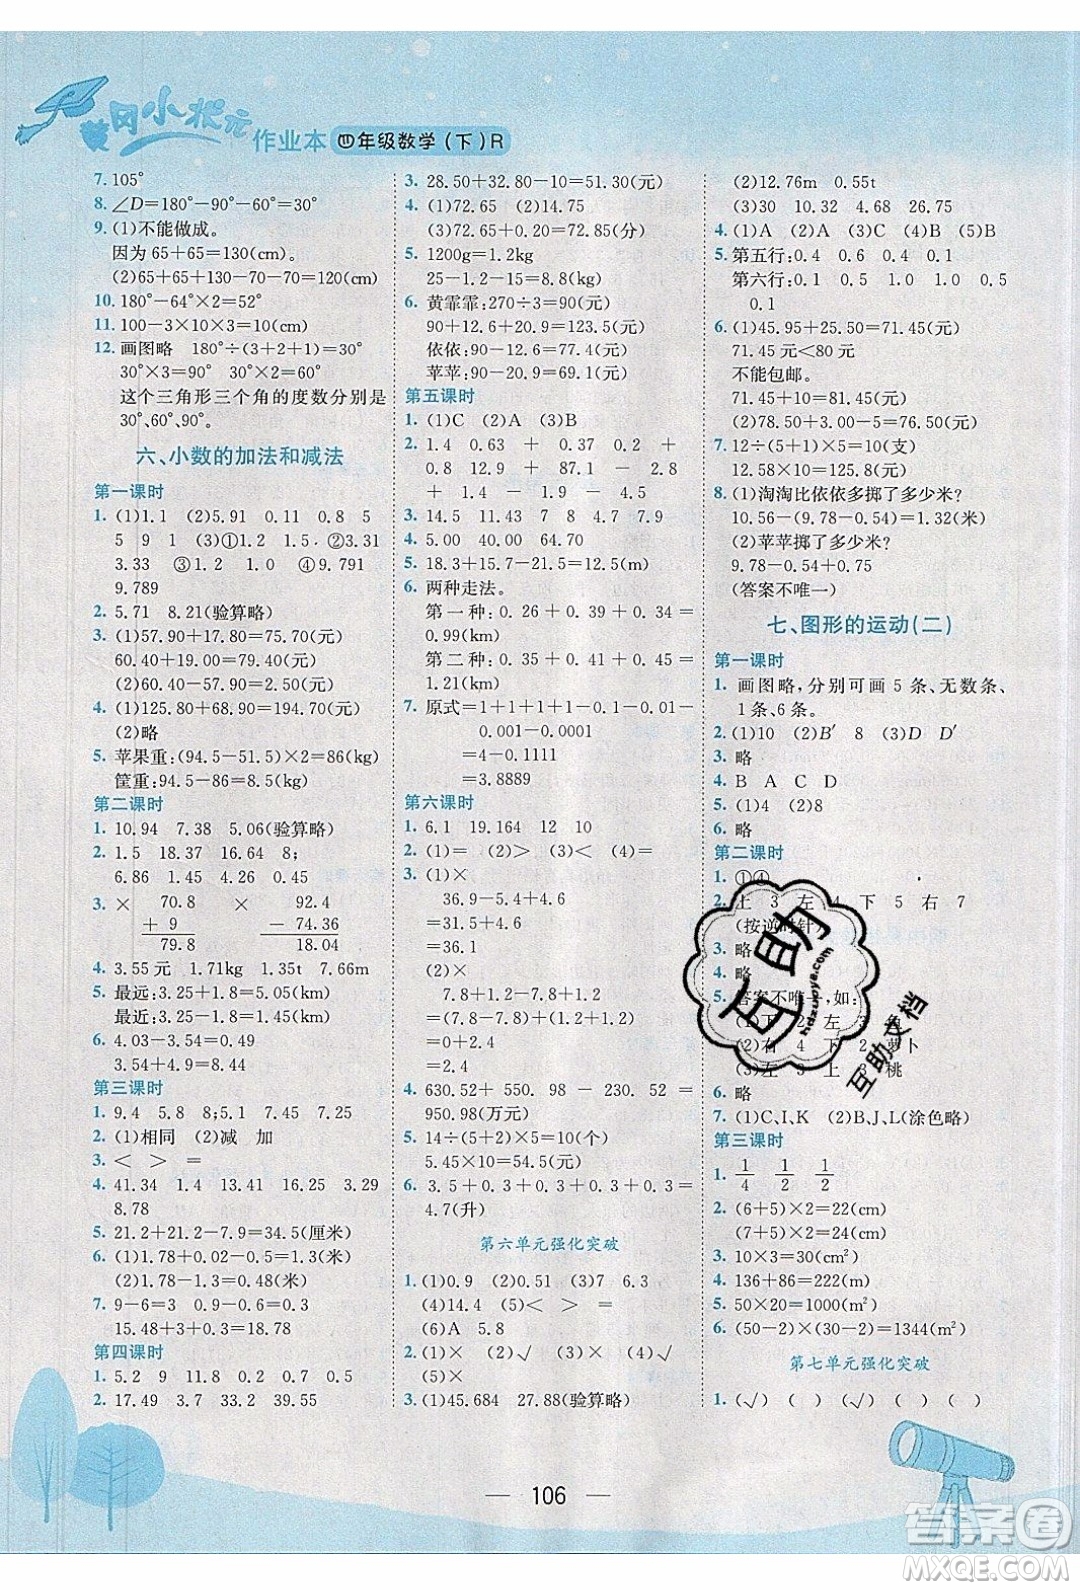 黄冈小状元 作业本 四年级数学(下)R
7. 105°
8. ∠D=180°-90°-60°=30°
9. (1)不能做成。
因为65+65=130(cm)。
(2)65+65+130-70-70=120(cm)
10. 180°-64°×2=52°
11. 100-3×10×3=10(cm)
12. 画图略 180°÷(3+2+1)=30°
30°×3=90° 30°×2=60°
这个三角形三个角的度数分别是
30°、60°、90°。
六、小数的加法和减法
第一课时
1. (1)1.1 (2)5.91 0.11 0.8 5
5 9 1 (3)①1.2 1.5 ②3.31
3.33 ③9.21 9.2 ④9.791
9.789
2. 5.71 8.21(验算略)
3. (1)57.90+17.80=75.70(元)
60.40+19.00=79.40(元)
(2)60.40-57.90=2.50(元)
4. (1)125.80+68.90=194.70(元)
(2)略
5. 苹果重:(94.5-51.5)×2=86(kg)
筐重:94.5-86=8.5(kg)
第二课时
1. 10.94 7.38 5.06(验算略)
2. 1.5 18.37 16.64 8;
6.86 1.45 4.26 20.45
3. × 70.8 × 92.4
+ 9 - 74.36
79.8 18.04
4. 3.55元 1.71kg 1.35t 7.66m
5. 最远:3.25+1.8=5.05(km)
最近:3.25-1.8=1.45(km)
6. 4.03-3.54=0.49
3.54+4.9=8.44
第三课时
1. 9.4 5.8 9.5;1.7 7.45 7.25
2. (1)相同 (2)减 加
3. < > =
4. 41.34 18.4 13.26 16.25
8.78
5. 21.2+21.2-7.9=34.5(厘米)
6. (1)1.78+0.02=1.80(米)
(2)1.78-1.30=0.48(米)
7. 9-6=3 0.9-0.6=0.3
15.48+3-0.3=18.18
第四课时
1. 5.2 9 11.8 9.88 0.5
2. 17.49 3.7 33.2 0.54
3. 28.50+32.80-10=51.30(元)
4. (1)72.65 (2)14.75
(3)72.65+0.20=72.85(分)
5. 1200g=1.2kg
25-1.2-15=8.8(kg)
6. 黄霏霏:270÷3=90(元)
90+12.5+21=123.5(元)
依依:90-12.5=77.5(元)
苹苹:90-21=69(元)
第五课时
1. (1)C (2)A (3)B
2. 1.4 0.63 + 0.2 +
0.8 12.9 + 87.1 - 2
+ 1.4 - 1.9 - 4.8
3. 14.5 11.43 7 8 0.58
4. 5.00 40.00 64.70
5. 18.3+15.7-21.5=12.5(m)
6. 两种走法。
第一种:0.26+0.39+0.34=
0.99(km)
第二种:0.29+0.34+0.58=
1.21(km)
7. 原式=1+1+1+1-0.1-0.01-
0.001-0.0001
=4-0.1111
=3.8889
第六课时
1. 6.1 19.164 12 10
2. (1)= (2)> (3)< (4)=
3. (1)×
36.9-(4.8-4)
=36.9-4.8+4
=31.5+4.6
=36.1
(2)×
7.8+1.2-7.8+1.2
=(7.8-7.8)+(1.2+1.2)
=0+2.4
=2.4
4. 630.52+550.96-230.52=
950.98(万元)
5. 14÷(5+2)×5=10(个)
5.45×10=54.5(元)
6. 3.5+0.3+0.3+0.3+0.3=
4.7(升)
第六单元强化突破
1. (1)0.9 (2)0.51 (3)7 6.3
(4)14.4 (5)< > =
(6)A 5.8
2. (1)× (2)√ (3)× (4)√
(5)×
3. (1)45.684 27.88(验算略)
(2)12.76m 0.55t
(3)30 10.82 6.48 26.75
4. (1)A (2)A (3)C
5. 第五行:0.4 0.6 0.4 0.1
第六行:0.5 1.0 1.0 0.5
0.1
6. (1)45.95+25.50=71.45(元)
71.45元<80元
不能包邮。
71.45+10=81.45(元)
(2)78.50+3.00-2.05=79.45(元)
7. 12÷(5+1)×5=10(支)
12.58×10=125.8(元)
8. (1)淘淘比依依多掷了多少米?
10.56-(9.78-0.54)=1.32(米)
(2)苹苹掷了多少米?
9.78-0.54+0.75=9.99(米)
(答案不唯一)
七、图形的运动(二)
第一课时
1. 画图略,分别可画5条、无数条、
1条、6条。
2. (1)10 (2)B′ 8 (3)D D′
3. 略
4. B A C D
5. (1)4 (2)8
6. 略
第二课时
1. ①④
2. 上 3 左 4 下 5 右 7
(按逆时针)
3. 略
4. 略
5. 答案不唯一,如:
(1)下 2 左 3 鱼
(2)右 4 下 2 萝卜
(3)左 3 上 3 桃
6. 略
7. (1)C,I,K (2)B,J,L(涂色略)
第三课时
1. 1/4 1/2 1/2
2. (6+5)×2=22(cm)
(7+5)×2=24(cm)
3. 10×3=30(cm²)
4. 136+86=222(m)
5. 50×20=1000(m²)
6. (50-2)×(30-2)=1344(m²)
第七单元强化突破
1. (√) ( ) ( ) ( ) ( )
互助
hdzuoye.com
互助文档
106
答案圈
MXQE.COM